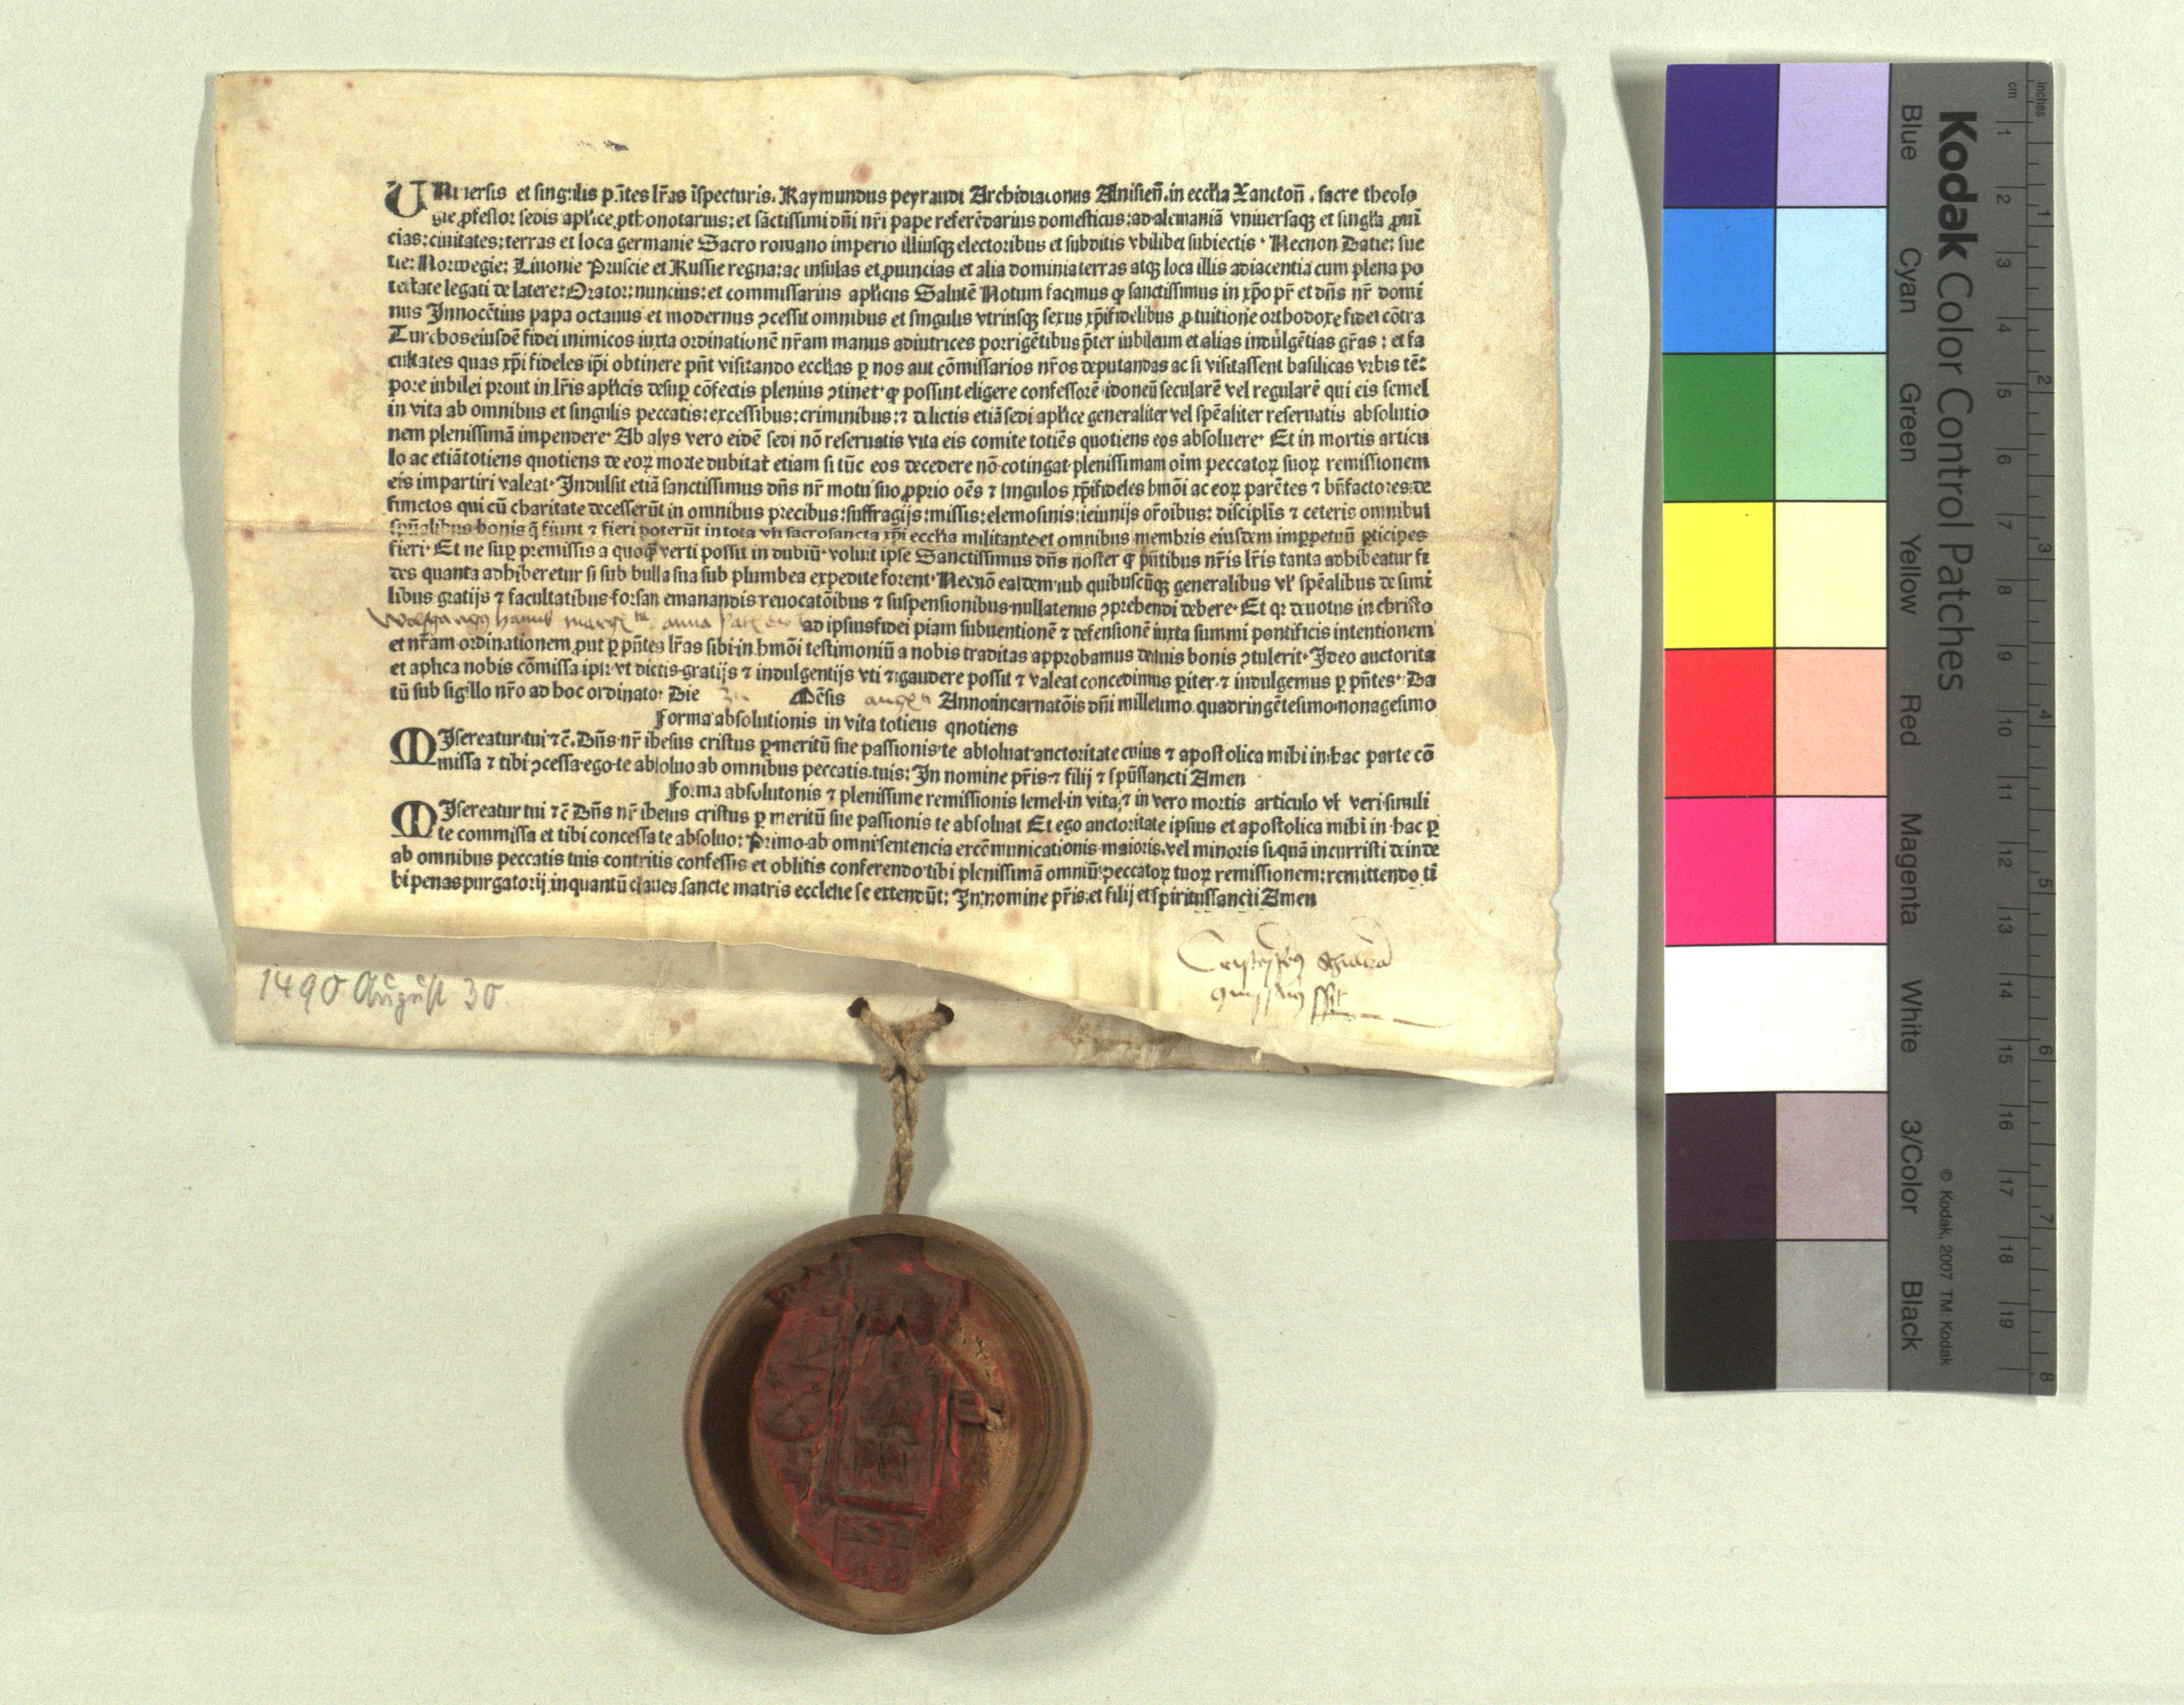 UNiuersis et singulis p̃ntes lr̃as ĩspecturis. Raymundus peyraudi Archidiaconus Alnisien̄. in eccl̃ia Xancton̄. sacre theolo
gie ꝓfessor sedis apl̃ice ꝓthonotarius: et sãctissimi dñi nr̃i pape referẽdarius domesticus: ad alemaniã vniuersaqꝫ et singl̃a ꝓui
cias: ciuitates: terras et loca germanie Sacro romano imperio illiusqꝫ electoribus et subditis vbilibet subiectis · Necnon Datie: sue
tie: Norwegie: Liuonie Pruscie et Russie regna: ac insulas et ꝓuincias et alia dominia terras atqꝫ loca illis adiacentia cum plena po
testate legati de latere: Orator: nuncius: et commissarius apl̃icus Salutẽ Notum facimus ꝙ sanctissimus in xp̃o pr̃ et dñs nr̃ domi
nus Innocẽtius papa octauus et modernus ꝯcessit omnibus et singulis vtriusqꝫ sexus xp̃ifidelibus ꝓ tuitione orthodoxe fidei cõtra
Turchos eiusdẽ fidei inimicos iuxta ordinationẽ nr̃am manus adiutrices porrigẽtibus p̃ter iubileum et alias indulgẽtias gr̃as: et fa
cultates quas xp̃i fideles ip̃i obtinere pñt visitando eccl̃ias ꝑ nos aut cõmissarios nr̃os deputandas ac si visitassent basilicas vrbis tẽ:
pore iubilei prout in lr̃is apl̃icis desuꝑ cõfectis plenius ꝯtinet᷑ ꝙ possint eligere confessorẽ idoneũ secularẽ vel regularẽ qui eis semel
in vita ab omnibus et singulis peccatis: excessibus: criminibus: ⁊ delictis etiã sedi apl̃ice generaliter vel spẽaliter reseruatis absolutio
nem plenissimã impendere· Ab alys vero eidẽ sedi nõ reseruatis vita eis comite totiẽs quotiens eos absoluere· Et in mortis articu
lo ac etiã totiens quotiens de eoꝝ morte dubitat̃ etiam si tũc eos decedere nõ cotingat plenissimam oĩm peccatoꝝ suoꝝ remissionem
eis impartiri valeat· Indulsit etiã sanctissimus dñs nr̃ motu suo ꝓprio oẽs ⁊ singulos xp̃ifideles hmõi ac eoꝝ parẽtes ⁊ bñfactores de
functos qui cũ charitate decesserũt in omnibus precibus: suffragijs: missis: elemosinis: ieiunijs or̃oibus: disciplĩs ⁊ ceteris omnibus
spũalibus bonis q̃ fiunt ⁊ fieri poterũt in tota vl̃i sacrosancta xp̃i eccl̃ia militante et omnibus membris eiusdem imꝑpetuũ ꝑticipes
fieri· Et ne suꝑ premissis a quoꝙ̃ verti possit in dubiũ· voluit ipse Sanctissimus dñs noster ꝙ pñtibus nr̃is lr̃is tanta adhibeatur fi
des quanta adhiberetur si sub bulla sua sub plumbea expedite forent· Necnõ easdem sub quibuscũqꝫ generalibus vl̃ spẽalibus de simi
libus gratijs ⁊ facultatibus forsan emanandis reuocatõibus ⁊ suspensionibus nullatenus ꝯprehendi debere· Et qꝛ deuotus in christo
Wolfgangus hanns anna ad ipsius fidei piam subuentionẽ ⁊ defensionẽ iuxta summi pontificis intentionem
et nr̃am ordinationem ꝓut ꝑ pñtes lr̃as sibi in hmõi testimoniũ a nobis traditas approbamus de suis bonis ꝯtulerit· Ideo auctorita
et aplica nobis cõmissa ip̃i: vt dictis gratijs ⁊ indulgentijs vti ⁊ gaudere possit ⁊ valeat concedimus ꝑiter ⁊ indulgemus ꝑ pñtes· Da
tũ sub sigillo nr̃o ad hoc ordinato: Die Mẽsis Anno incarnatõis dñi millesimo quadringẽtesimo nonagesimo
Forma absolutionis in vita totiens quotiens
MIsereatur tui ⁊c̃. Dñs nr̃ ihesus cristus ꝑ meritũ sue passionis te absoluat auctoritate cuius ⁊ apostolica mihi in hac parte cõ
missa ⁊ tibi ꝯcessa ego te absoluo ab omnibus peccatis tuis: In nomine pr̃is ⁊ filij ⁊ spũssancti Amen
Forma absolutonis ⁊ plenissime remissionis semel in vita ⁊ in vero mortis articulo vl̃ verisimili
MIsereatur tui ⁊c̃ Dñs nr̃ ihesus cristus ꝑ meritũ sue passionis te absoluat Et ego auctoritate ipsius et apostolica mihi in hac ꝑ
te commissa et tibi concessa te absoluo: Primo ab omni sentencia excẽmunicationis maioris vel minoris si quã incurristi deinde
ab omnibus peccatis tuis contritis confessis et oblitis conferendo tibi plenissimã omniũ peccatoꝝ tuoꝝ remissionem: remittendo ti
bi penas purgatorij inquantũ claues sancte matris ecclesie se extendũt: In nomine pr̃is et filij et spiritussancti Amen
1490 August 30.
Kodak Color Control Patches
Blue Cyan Green Yellow Red Magenta White 3/Color Black
© Kodak, 2007 TM: Kodak
inches 1 2 3 4 5 6 7 8
cm 1 2 3 4 5 6 7 8 9 10 11 12 13 14 15 16 17 18 19